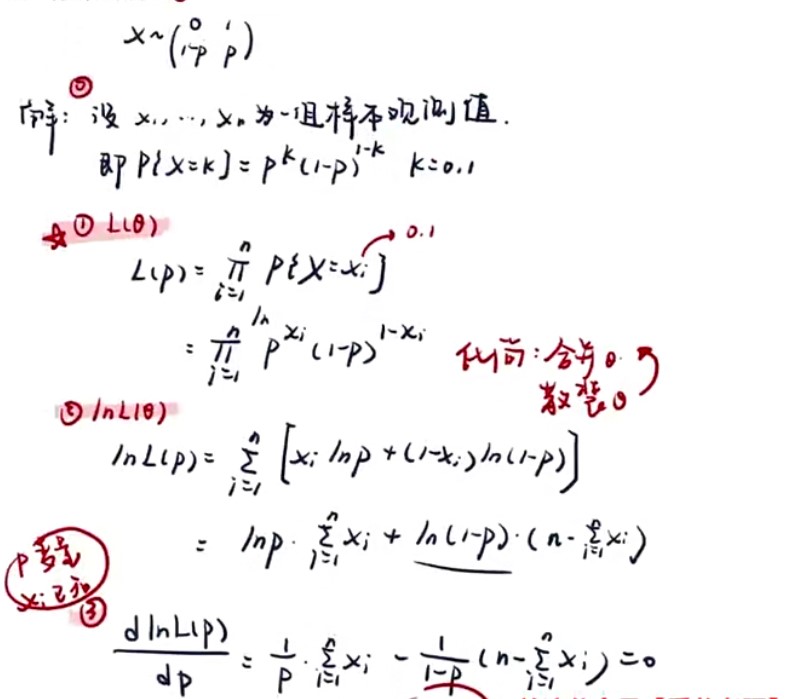 X~(0 1 / 1-p p)
⓪
解: 设 x₁, ..., xₙ 为一组样本观测值.
即 P{X=k} = p^k (1-p)^{1-k} k=0,1
☆ ① L(θ)
L(p) = ∏_{i=1}^{n} P{X=x_i} → 0,1
= ∏_{i=1}^{n} ln p^{x_i} (1-p)^{1-x_i}
化简: 合并θ.
散装θ
② lnL(θ)
lnL(p) = ∑_{i=1}^{n} [x_i lnp + (1-x_i) ln(1-p)]
= lnp · ∑_{i=1}^{n} x_i + ln(1-p) · (n - ∑_{i=1}^{n} x_i)
p 变量
x_i 已知
③
d lnL(p) / dp = 1/p · ∑_{i=1}^{n} x_i - 1/(1-p) (n - ∑_{i=1}^{n} x_i) = 0